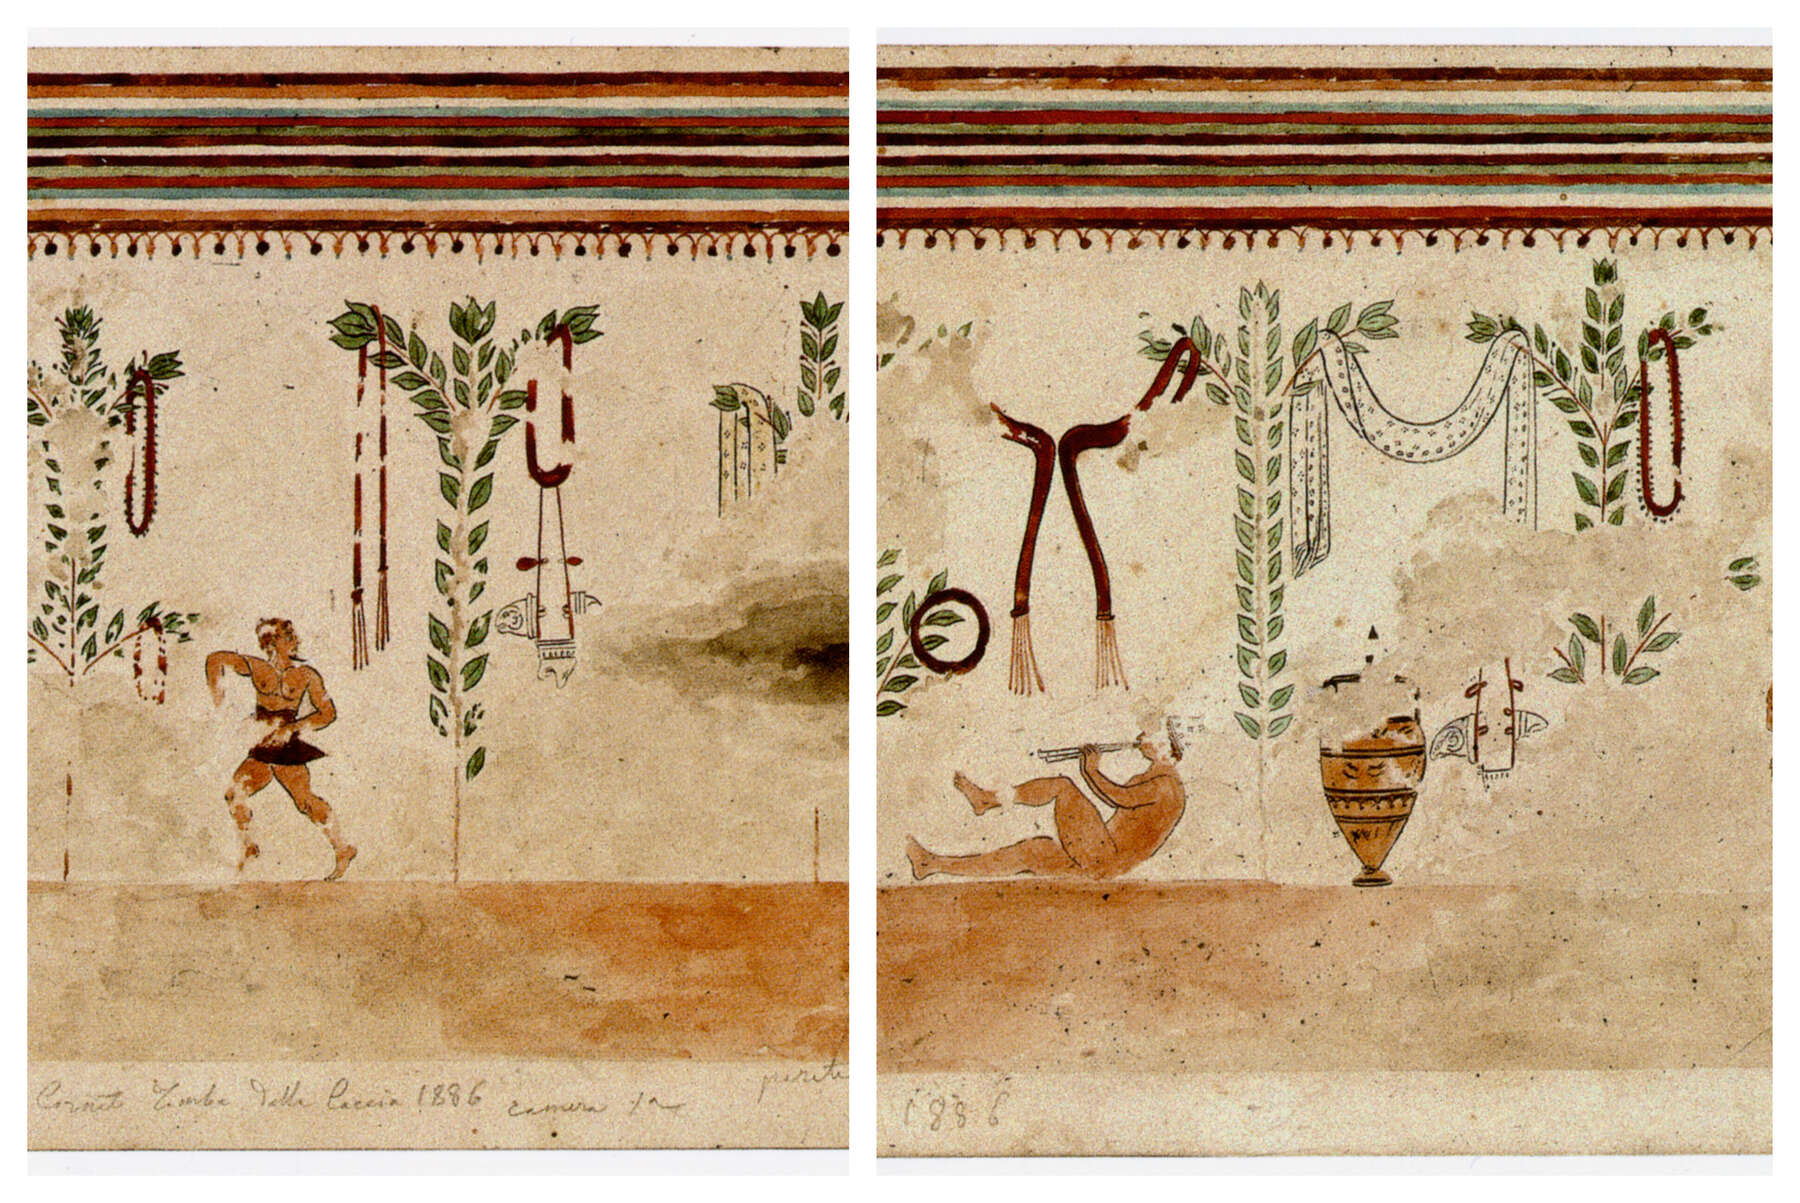 Corneto Tomba della Caccia 1886 camera 1a
parete
1886